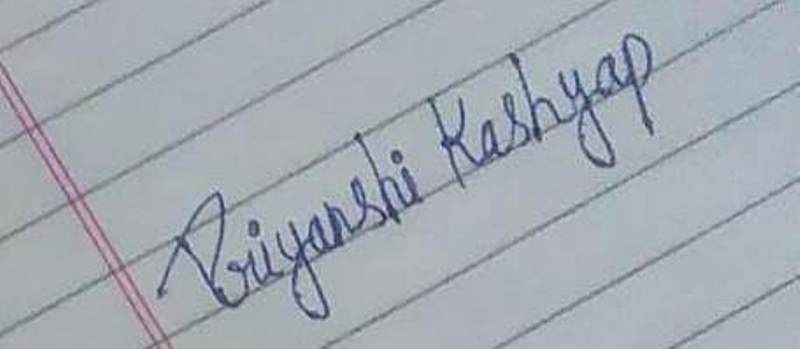 Priyanshi Kashyap